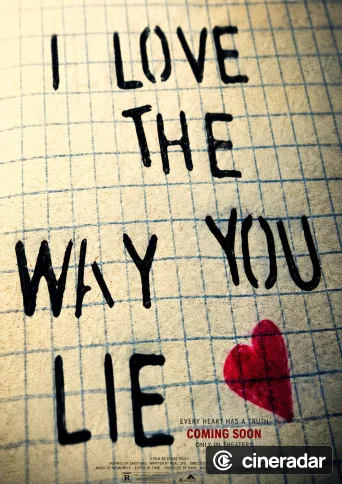 I LOVE
THE
WAY YOU
LIE
EVERY HEART HAS A TRUTH.
COMING SOON
ONLY IN THEATERS
cineradar